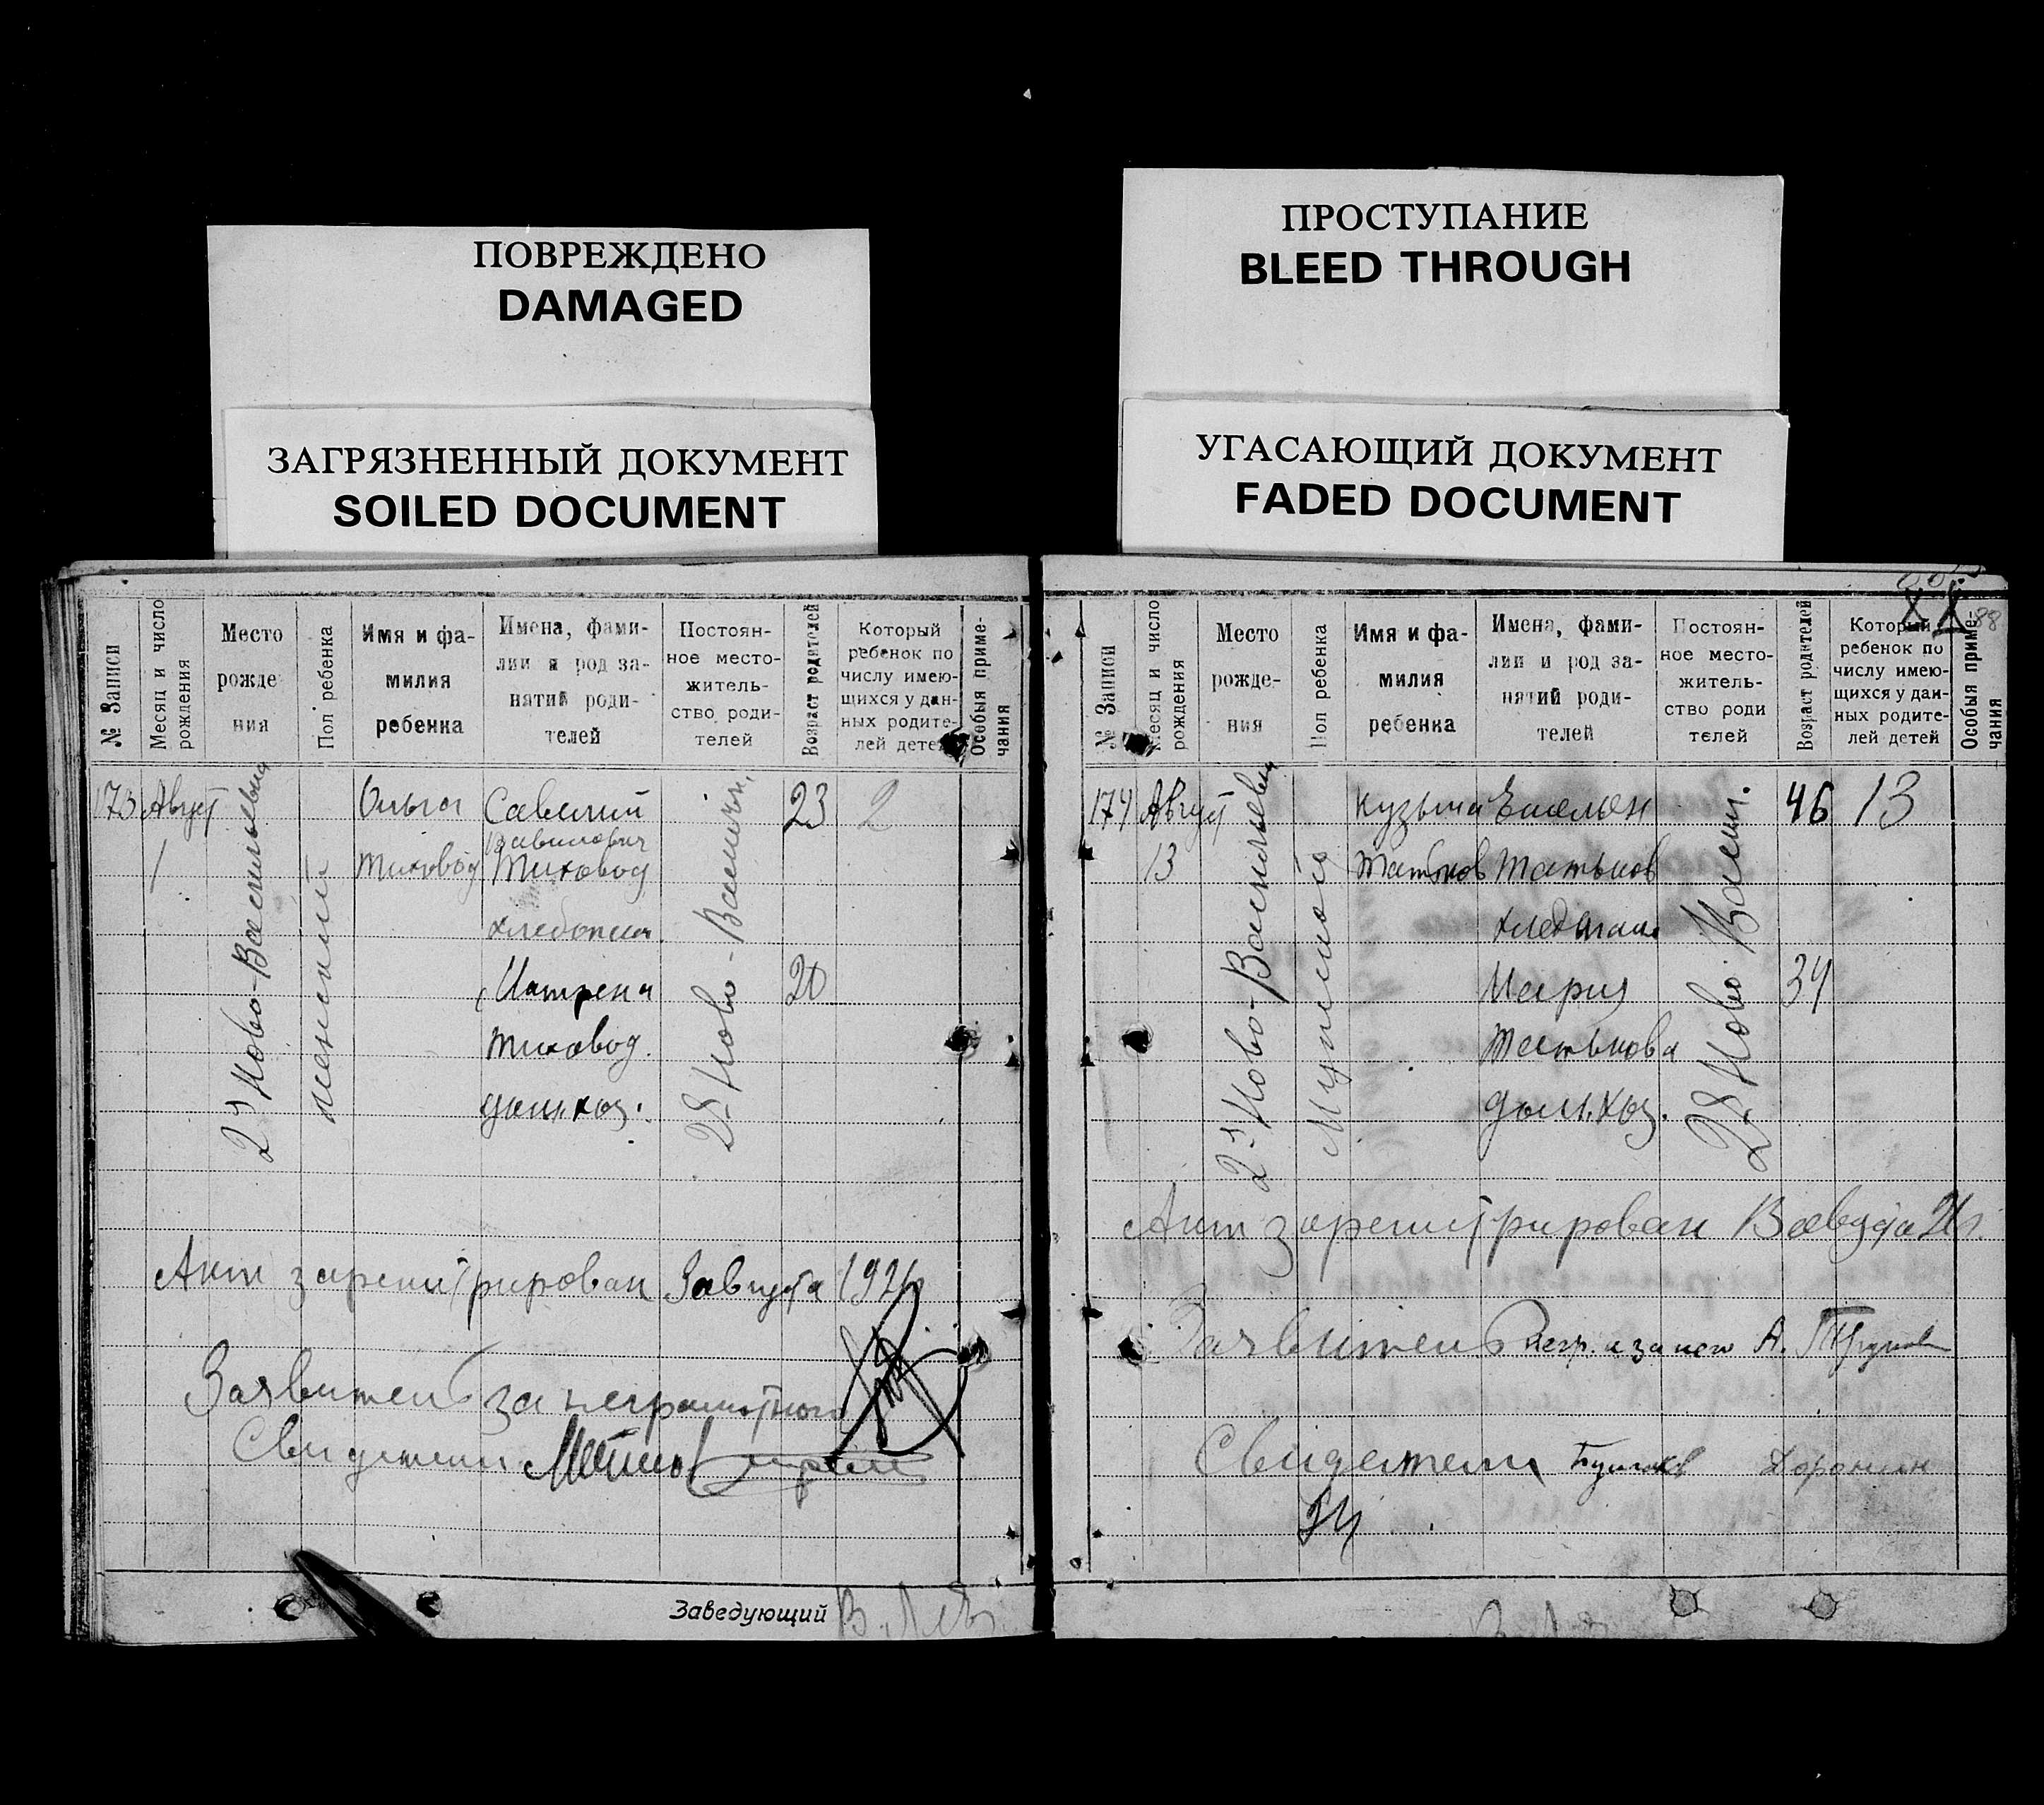 ПОВРЕЖДЕНО
DAMAGED
ЗАГРЯЗНЕННЫЙ ДОКУМЕНТ
SOILED DOCUMENT
ПРОСТУПАНИЕ
BLEED THROUGH
УГАСАЮЩИЙ ДОКУМЕНТ
FADED DOCUMENT
№ Записи
Месяц и число
рождения
Место
рожде
ния
Пол ребенка
Имя и фа-
милия
ребенка
Имена, фами-
лии и род за-
нятий роди-
телей
Постоян-
ное место-
житель-
ство роди-
телей
Возраст родителей
Который
ребенок по
числу имею-
щихся у дан-
ных родите-
лей детей
Особыя приме-
чания
173 Август
1
2-я Ново-Васильевка
женский
Ольга
Тиховод
Савелий
Вавилович
Тиховод
хлебопаш
Матрена
Тиховод.
дом. хоз.
23
20
2
Акт зарегистрирован 3 августа 192
Заявитель за неграмотного
Свидетели
Заведующий
№ Записи
Месяц и число
рождения
Место
рожде-
ния
Пол ребенка
Имя и фа-
милия
ребенка
Имена, фами-
лии и род за-
нятий роди-
телей
Постоян-
ное место-
житель-
ство роди
телей
Возраст родителей
Который
ребенок по
числу имею-
щихся у дан-
ных родите-
лей детей
Особыя приме-
чания
88
174 Август
13
2-я Ново-Васильевка
Мужской
Кузьма
Татьков
Емельян
Татьков
Мария
Татькова
дом. хоз.
46
34
13
Акт зарегистрирован
Заявитель негр. а за него А.
Свидетели Булгаков Доронин